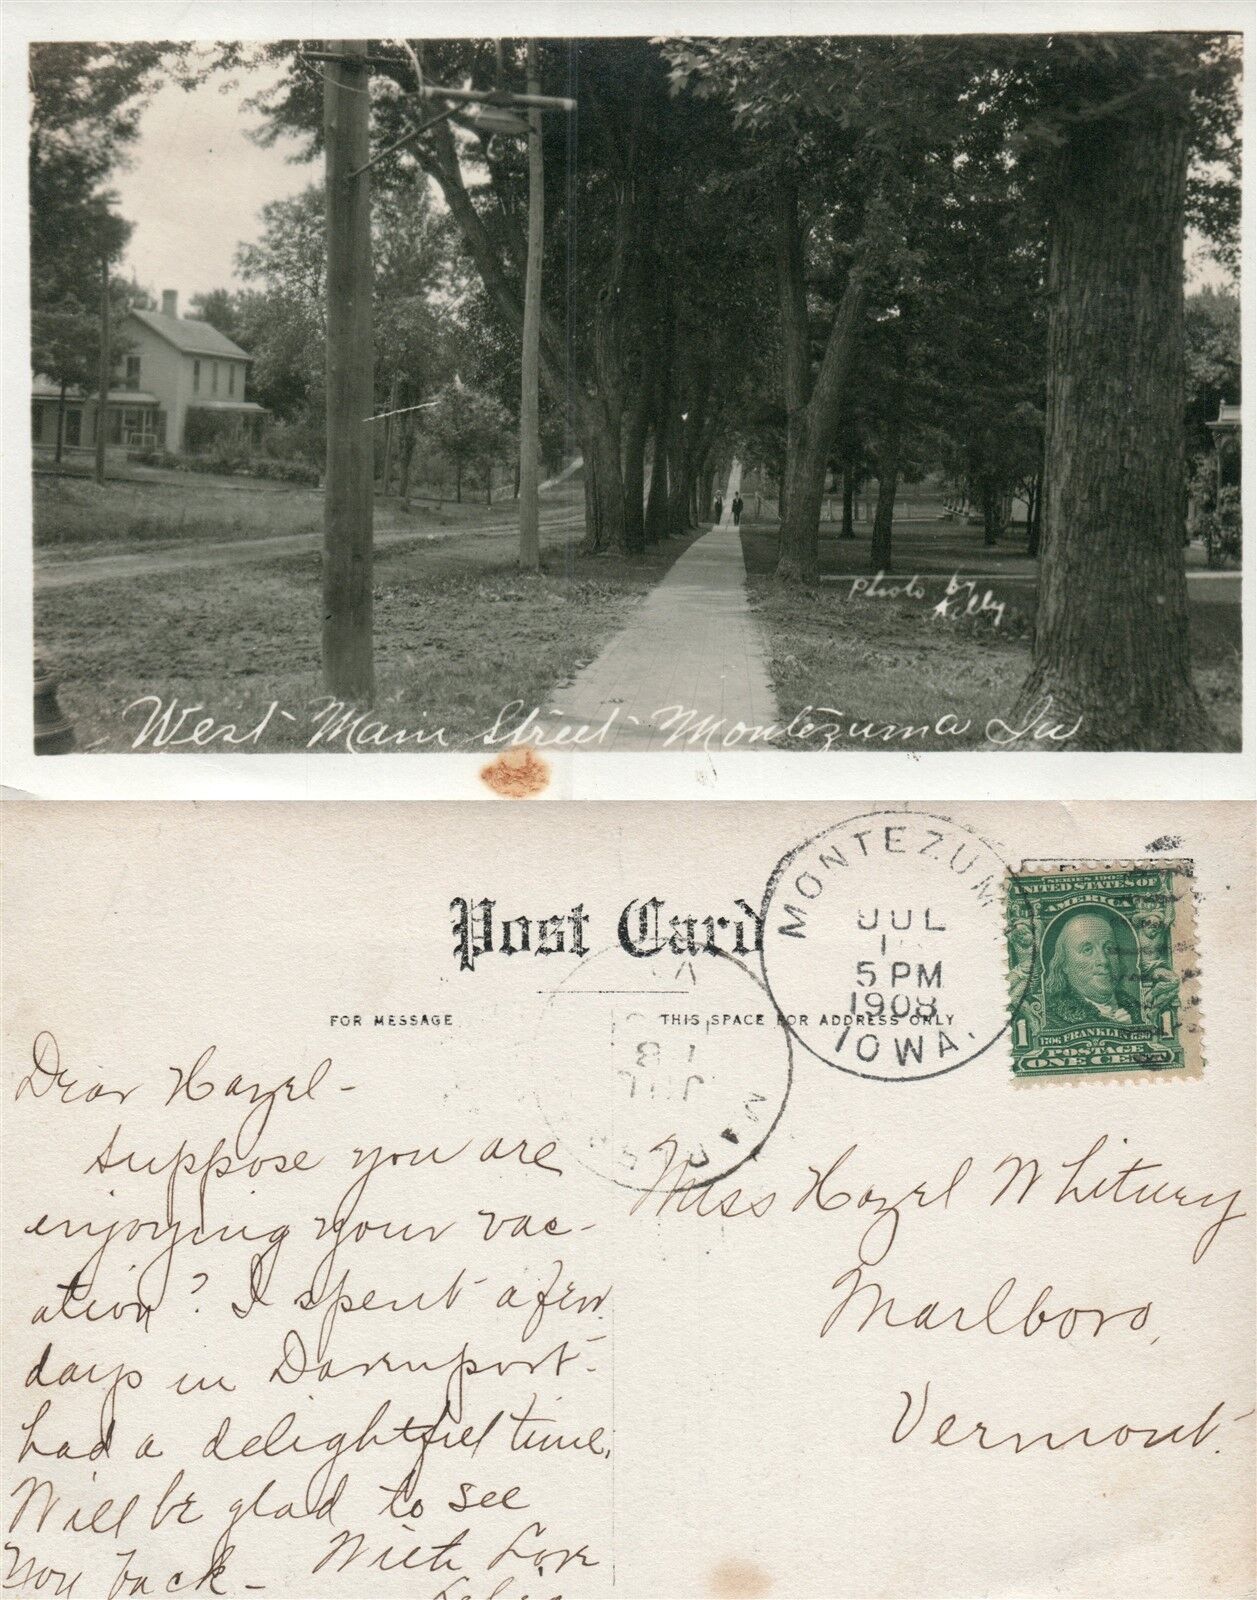 Photo by
Kelly
West Main Street Montezuma Ia
Post Card
FOR MESSAGE
THIS SPACE FOR ADDRESS ONLY
MONTEZUM
JUL
5 PM
1908
IOWA.
SERIES 1902
UNITED STATES OF
AMERICA
1 1
1706 FRANKLIN 1790
POSTAGE
ONE CENT
Dear Hazel-
Suppose you are
enjoying your vac-
ation? I spent a few
days in Davenport-
had a delightful time.
Will be glad to see
you back- With Love
Miss Hazel Whitney
Marlboro,
Vermont.